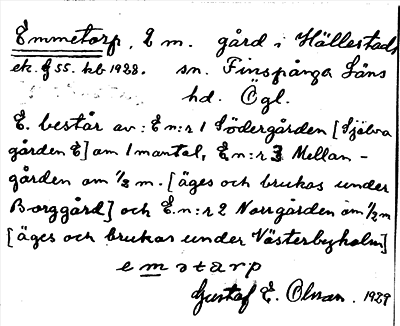 Emmetorp, 2 m. gård i Hällestads
ek. f 55. kb 1928. sn. Finspånga Läns
hd. Ögl.
E. består av: E n:r 1 Södergården [Själva
gården E] om 1 mantal, E n:r 3 Mellan-
gården om 1/2 m. [äges och brukas under
Borggård] och E. n:r 2 Norrgården om 1/2 m
[äges och brukas under Västerbyholm]
emotarp
Gustaf E. Olsson. 1929